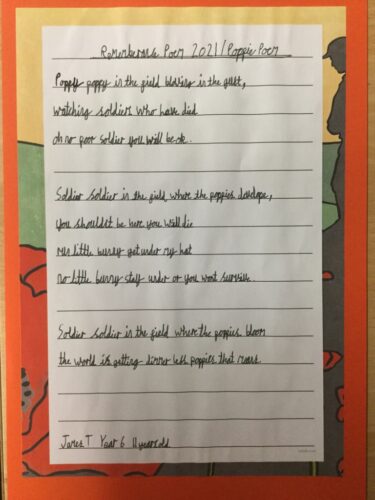 Rememberance Poem 2021/Poppie Poem
Poppy poppy in the field blowing in the gust,
watching soldiers who have did
oh no poor soldier you will be ok.
Soldier soldier in the field where the poppies develope,
you shouldet be here you will die
mrs little bunny get under my hat
no little bunny stay under or you wont survive.
Soldier soldier in the field where the poppies bloom
the world is getting dimmer less poppies that means.
James T Year 6 11 years old